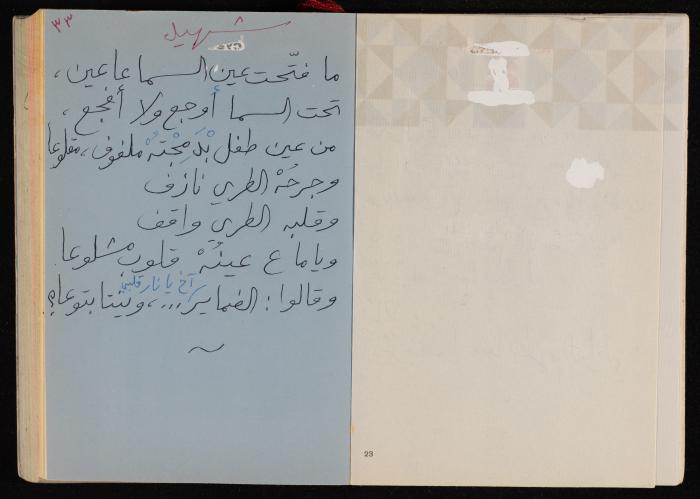 ٣٣
شهيد
ما فتّحت عين السما عا عين،
تحت السما أوجع ولا أفجع،
من عين طفل بْدَمِعْتُهْ ملفوف، مقلوعا
وجرحُهْ الطري نازف
وقلبه الطري واقف
وياما ع عينُهْ قلوب مشلوعا
آخ يا نار قلبي
وقالوا: الضماير...، وينتا بتوعا؟
23